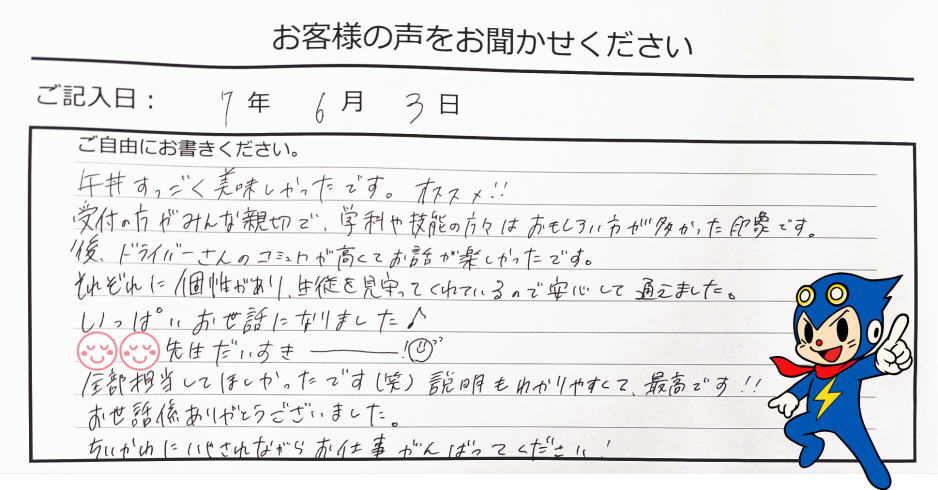 お客様の声をお聞かせください
ご記入日： 7年 6月 3日
ご自由にお書きください。
牛丼すっごく美味しかったです。オススメ!!
受付の方がみんな親切で、学科や技能の方々はおもしろい方が多かった印象です。
後、ドライバーさんのコミュ力が高くてお話が楽しかったです。
それぞれに個性があり、生徒を見守ってくれているので安心して通えました。
いっぱいお世話になりました♪
先生だいすき――!
全部担当してほしかったです(笑) 説明もわかりやすくて、最高です!!
お世話係ありがとうございました。
ちいかわにいやされながらお仕事がんばってください!